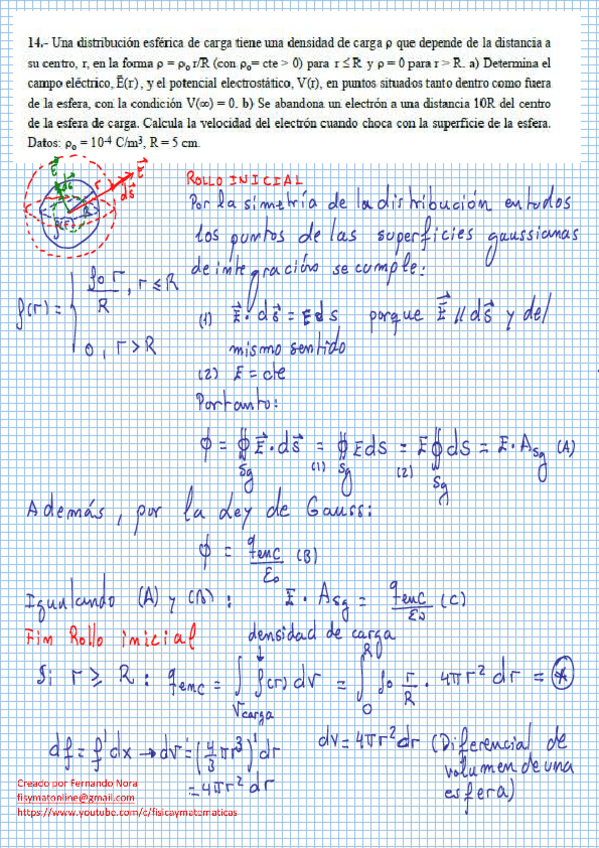 14.- Una distribución esférica de carga tiene una densidad de carga ρ que depende de la distancia a
su centro, r, en la forma ρ = ρ₀ r/R (con ρ₀= cte > 0) para r ≤ R y ρ = 0 para r > R. a) Determina el
campo eléctrico, Ē(r⃗), y el potencial electrostático, V(r), en puntos situados tanto dentro como fuera
de la esfera, con la condición V(∞) = 0. b) Se abandona un electrón a una distancia 10R del centro
de la esfera de carga. Calcula la velocidad del electrón cuando choca con la superficie de la esfera.
Datos: ρ₀ = 10⁻⁴ C/m³, R = 5 cm.
ROLLO INICIAL
Por la simetría de la distribución en todos
los puntos de las superficies gaussianas
de integración se cumple:
ρ(r) = { ρ₀ r / R , r ≤ R
0 , r > R
(1) E⃗ · ds⃗ = E ds porque E⃗ // ds⃗ y del
mismo sentido
(2) E = cte
Por tanto:
ϕ = ∯ E⃗ · ds⃗ = ∯ E ds = E ∯ ds = E · A Sg (A)
Sg (1) Sg (2) Sg
Además, por la Ley de Gauss:
ϕ = q enc / ε₀ (B)
Igualando (A) y (B): E · A Sg = q enc / ε₀ (C)
Fin Rollo inicial
densidad de carga
Si r ≥ R : q enc = ∫ Vcarga ρ(r) dv = ∫₀ᴿ ρ₀ r/R · 4πr² dr = *
df = f' dx → dv = (4/3 πr³)' dr
= 4πr² dr
dv = 4πr² dr (Diferencial de
volumen de una
esfera)
Creado por Fernando Nora
fisymatonline@gmail.com
https://www.youtube.com/c/fisicaymatematicas